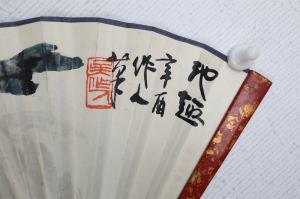 池趣
辛酉
作人